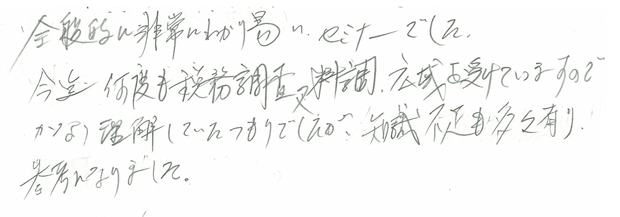 全般的に非常にわかり易い、セミナーでした。
今迄何度も税務調査又料調、広域を受けていますので
かなり理解していたつもりでしたが、知識不足も多々有り、
参考になりました。